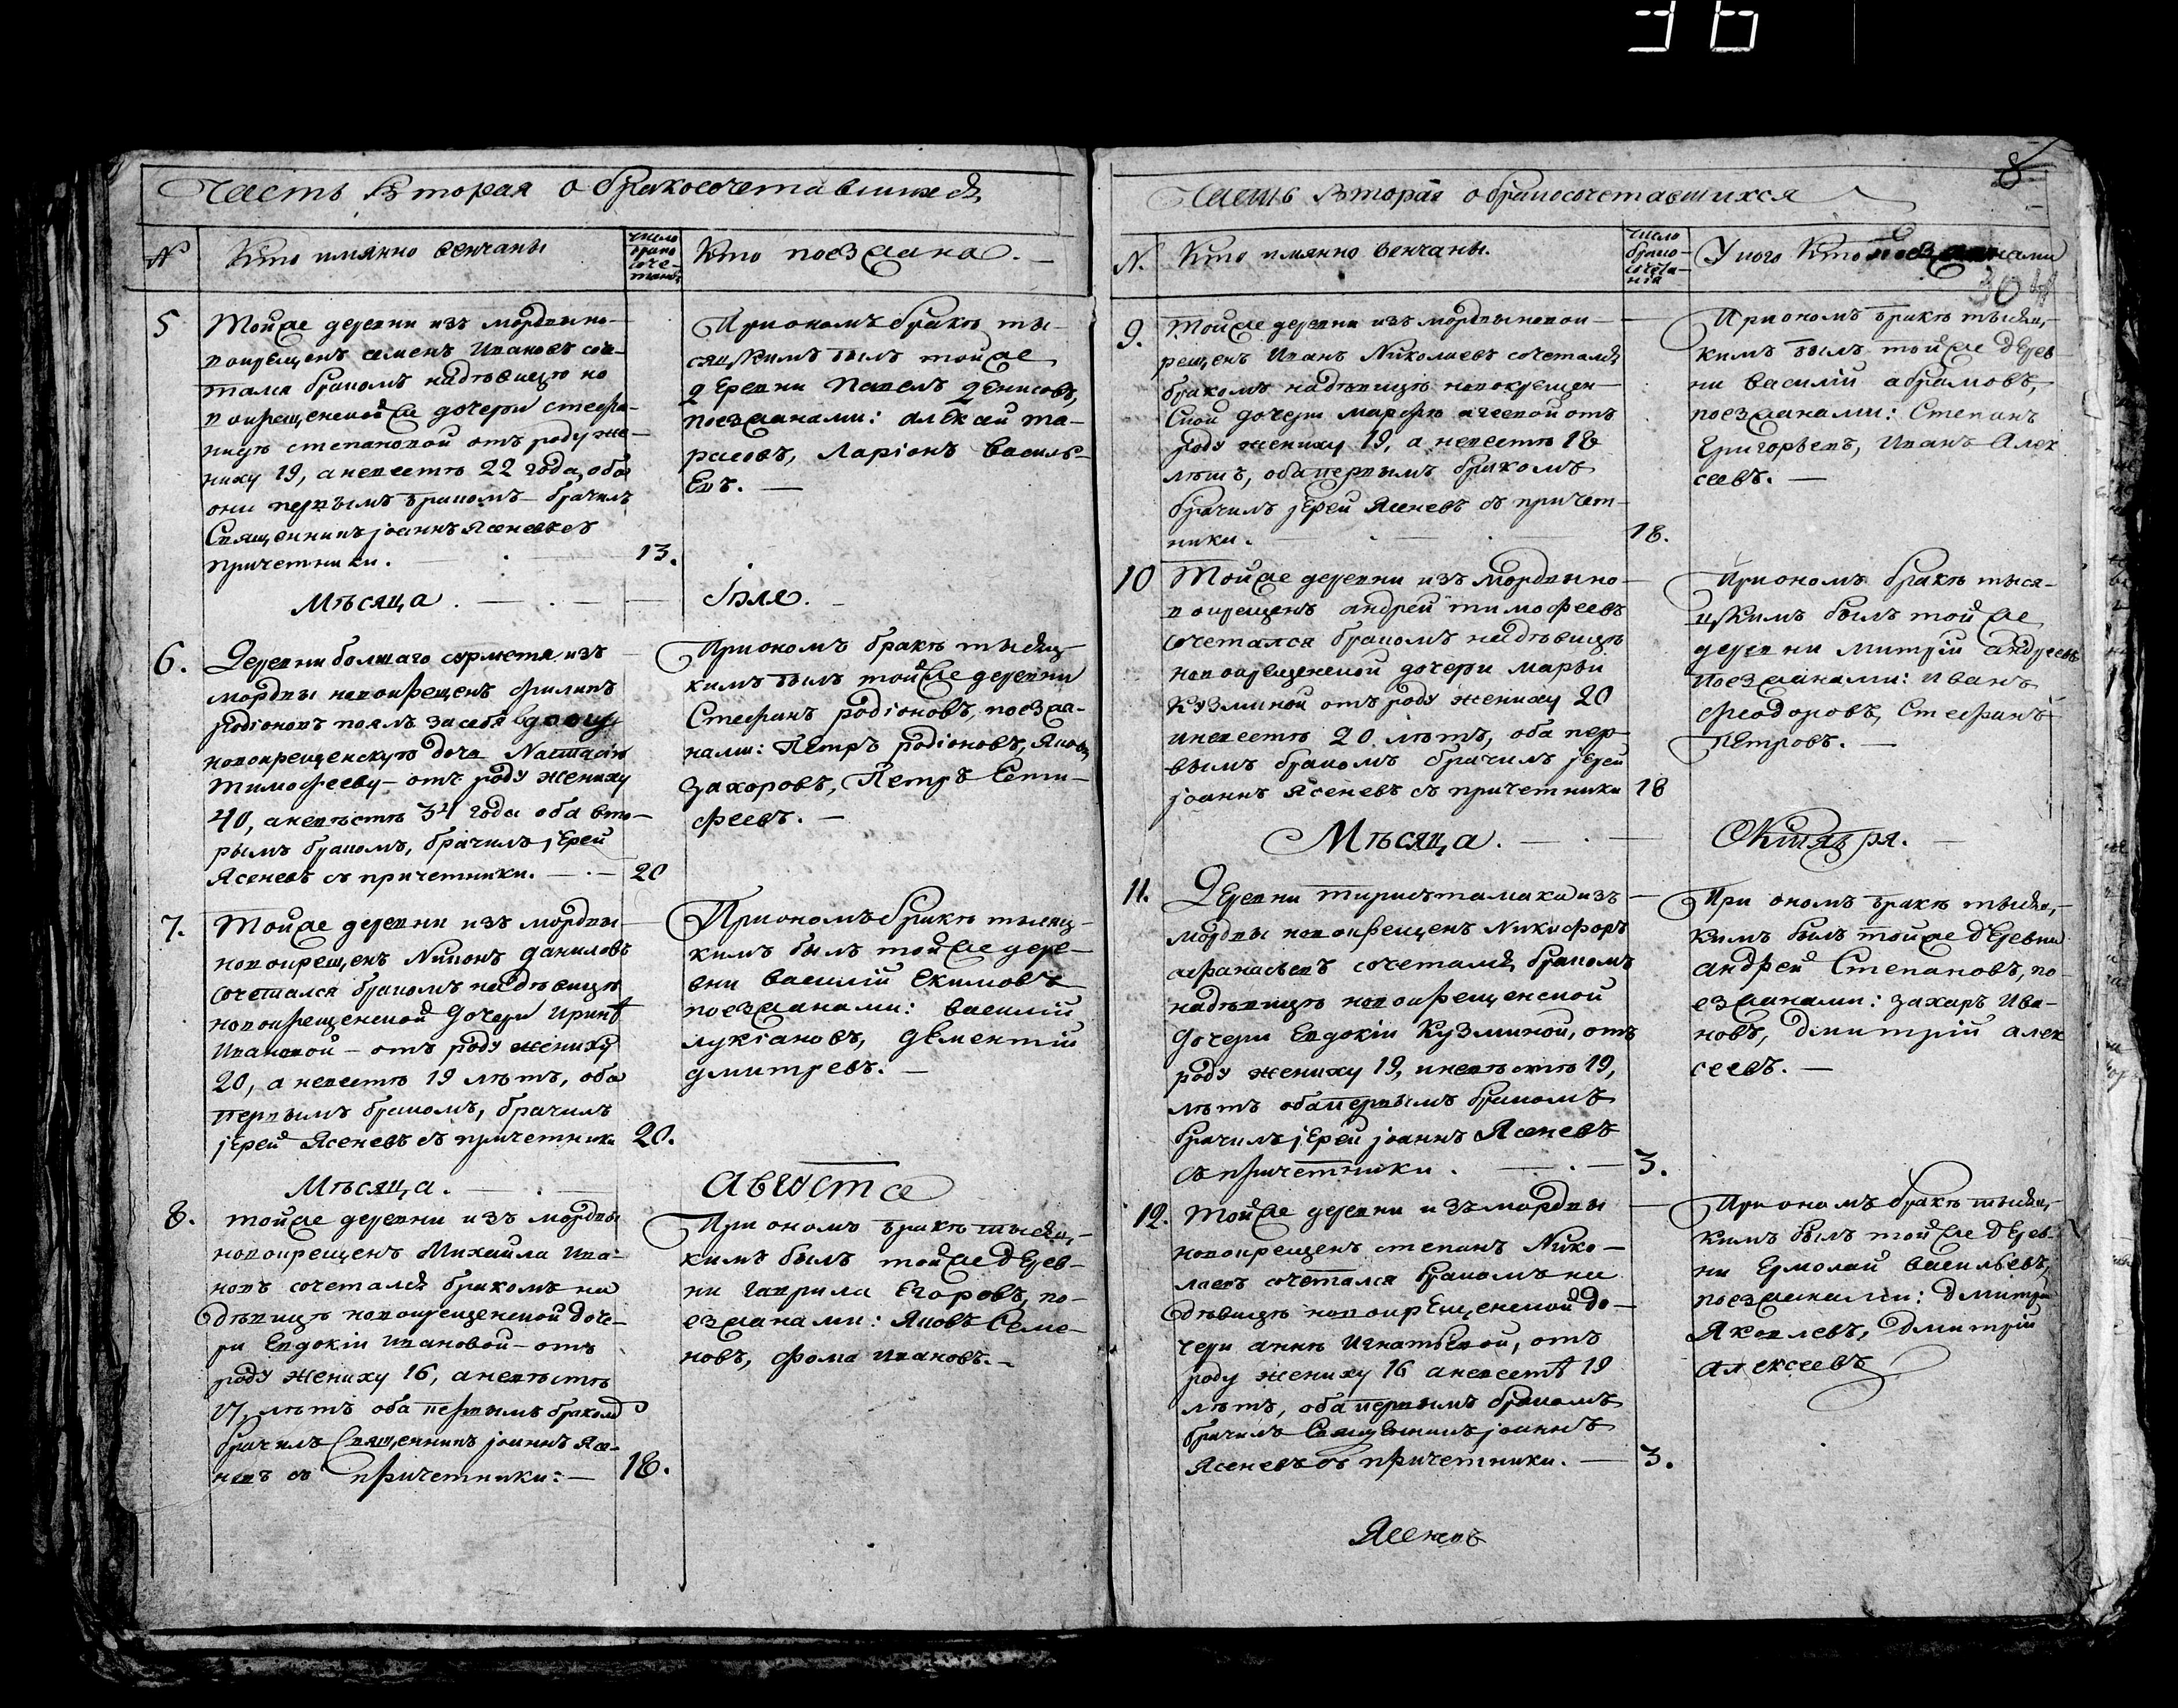 36
Часть Вторая о бракосочетавшихся
№
Кто имянно венчаны
число брако соче- танiя
Кто поезжана. —
5
Тойже деревни изъ мордвы но-
вокрещенъ семенъ Ивановъ соче-
тался бракомъ надѣвицѣ но
вокрещенской же дочери стефа-
нидѣ степановой отъ роду же-
ниху 19, аневестѣ 22 года, оба
они первымъ бракомъ — брачилъ
Священникъ jоаннъ Ясеневъ съ
причетники.
13.
При ономъ бракѣ ты-
сяцкимъ былъ тойже
деревни Павелъ Денисовъ,
поезжанами: алексѣй та-
расовъ, Ларiонъ василь-
евъ. —
Мѣсяца.
Iюля.
6.
Деревни болшаго сурмета изъ
мордвы новокрещенъ филипъ
родiоновъ поялъ засебя вдовую
новокрещенскую дочь Настасiю
тимофееву — отъ роду жениху
40, аневѣстѣ 34 года оба вто-
рымъ бракомъ, брачилъ jерей
Ясеневъ съ причетники. —
20
При ономъ бракѣ тысяц-
кимъ былъ тойже деревни
Стефанъ родiоновъ, поезжа-
нами: Петръ родiоновъ, Яковъ
захоровъ, Петръ Ести-
феевъ. —
7.
Тойже деревни изъ мордвы
новокрещенъ Никонъ даниловъ
сочетался бракомъ надѣвицѣ
новокрещенской дочери иринѣ
Ивановой — отъ роду жениху
20, а невестѣ 19 лѣтъ, оба
первымъ бракомъ, брачилъ
jерей Ясеневъ съ причетники
20.
При ономъ бракѣ тысяц-
кимъ былъ тойже дере-
вни василiй Екимовъ
поезжанами: василiй
лукiановъ, дементiй
дмитревъ. —
Мѣсяца.
Августа
8.
тойже деревни изъ мордвы
новокрещенъ Михаила ива-
новъ сочетался бракомъ на
дѣвицѣ новокрещенской доче-
ри Евдокiи ивановой — отъ
роду жениху 16, аневѣстѣ
17, лѣтъ оба первымъ бракомъ
брачилъ Священникъ jоаннъ Ясе-
невъ съ причетники: —
18.
При ономъ бракѣ тысяц-
кимъ былъ тойже дерев-
ни гаврила Егоровъ, по-
езжанами: Яковъ Семе-
новъ, фома ивановъ. —
8
Часть Вторая обракосочетавшихся
N.
Кто имянно венчаны.
число брако- сочета- нiя
У кого Кто поезжанами
30
9.
Тойже деревни изъ мордвы новок-
рещенъ Иванъ Николаевъ сочетался
бракомъ надѣвицѣ новокрещен-
ской дочери марфѣ агеевой отъ
роду жениху 19, а невестѣ 18
лѣтъ, оба первымъ бракомъ
брачилъ jерей Ясеневъ съ причет-
ники.
18.
При ономъ бракѣ тысяц-
кимъ былъ тойже дерев-
ни василiй абрамовъ,
поезжанами: Степанъ
григорьевъ, иванъ Алек
сеевъ. —
10
Тойже деревни изъ мордвы но-
вокрещенъ андрей тимофеевъ
сочетался бракомъ надѣвицѣ
новокрещенской дочери марьи
кузминой отъ роду жениху 20
иневестѣ 20 лѣтъ, оба пер-
вымъ бракомъ брачилъ jерей
jоаннъ Ясеневъ съ причетники
18
При ономъ бракѣ тыся-
цкимъ былъ тойже
деревни митрiй андреевъ
поезжанами: иванъ
феодоровъ, Стефанъ
петровъ. —
Мѣсяца.
Октября.
11.
Деревни изъ
мордвы новокрещенъ Никифоръ
афанасьевъ сочетался бракомъ
надѣвицѣ новокрещенской
дочери Евдокiи Кузминой, отъ
роду жениху 19, иневѣстѣ 19,
лѣтъ оба первымъ бракомъ
брачилъ jерей jоаннъ Ясеневъ
съ причетники.
3.
При ономъ бракѣ тысяц-
кимъ былъ тойже деревни
андрей Степановъ, по-
езжанами: захаръ ива-
новъ, дмитрiй алек
сеевъ. —
12.
Тойже деревни изъ мордвы
новокрещенъ степанъ Нико-
лаевъ сочетался бракомъ на
дѣвицѣ новокрещенской до-
чери аннѣ игнатьевой, отъ
роду жениху 16 аневестѣ 19
лѣтъ, оба первымъ бракомъ
брачилъ Священникъ jоаннъ
Ясеневъ съ причетники. —
3.
При ономъ бракѣ тысяц-
кимъ былъ тойже дерев-
ни Ермолай васильевъ,
поезжанами: дмитри
Яковлевъ, дмитрiй
алексеевъ
Ясеневъ